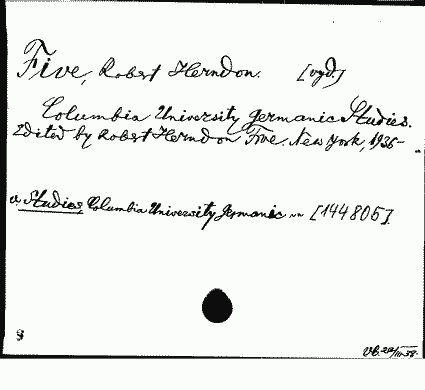 Five, Robert Herndon. [vyd.]
Columbia University Germanic Studies.
Edited by Robert Herndon Five. New York, 1936-
v. Studies, Columbia University Germanic [144805].